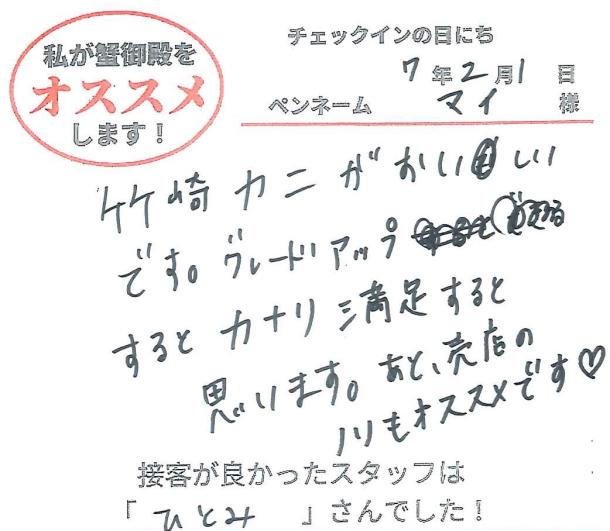 私が蟹御殿を
オススメ
します！
チェックインの日にち
7年2月1日
ペンネーム マイ 様
竹崎カニがおいしい
です。グレードアップ
するとカナリ満足すると
思います。あと、売店の
ノリもオススメです♡
接客が良かったスタッフは
「ひとみ」さんでした！